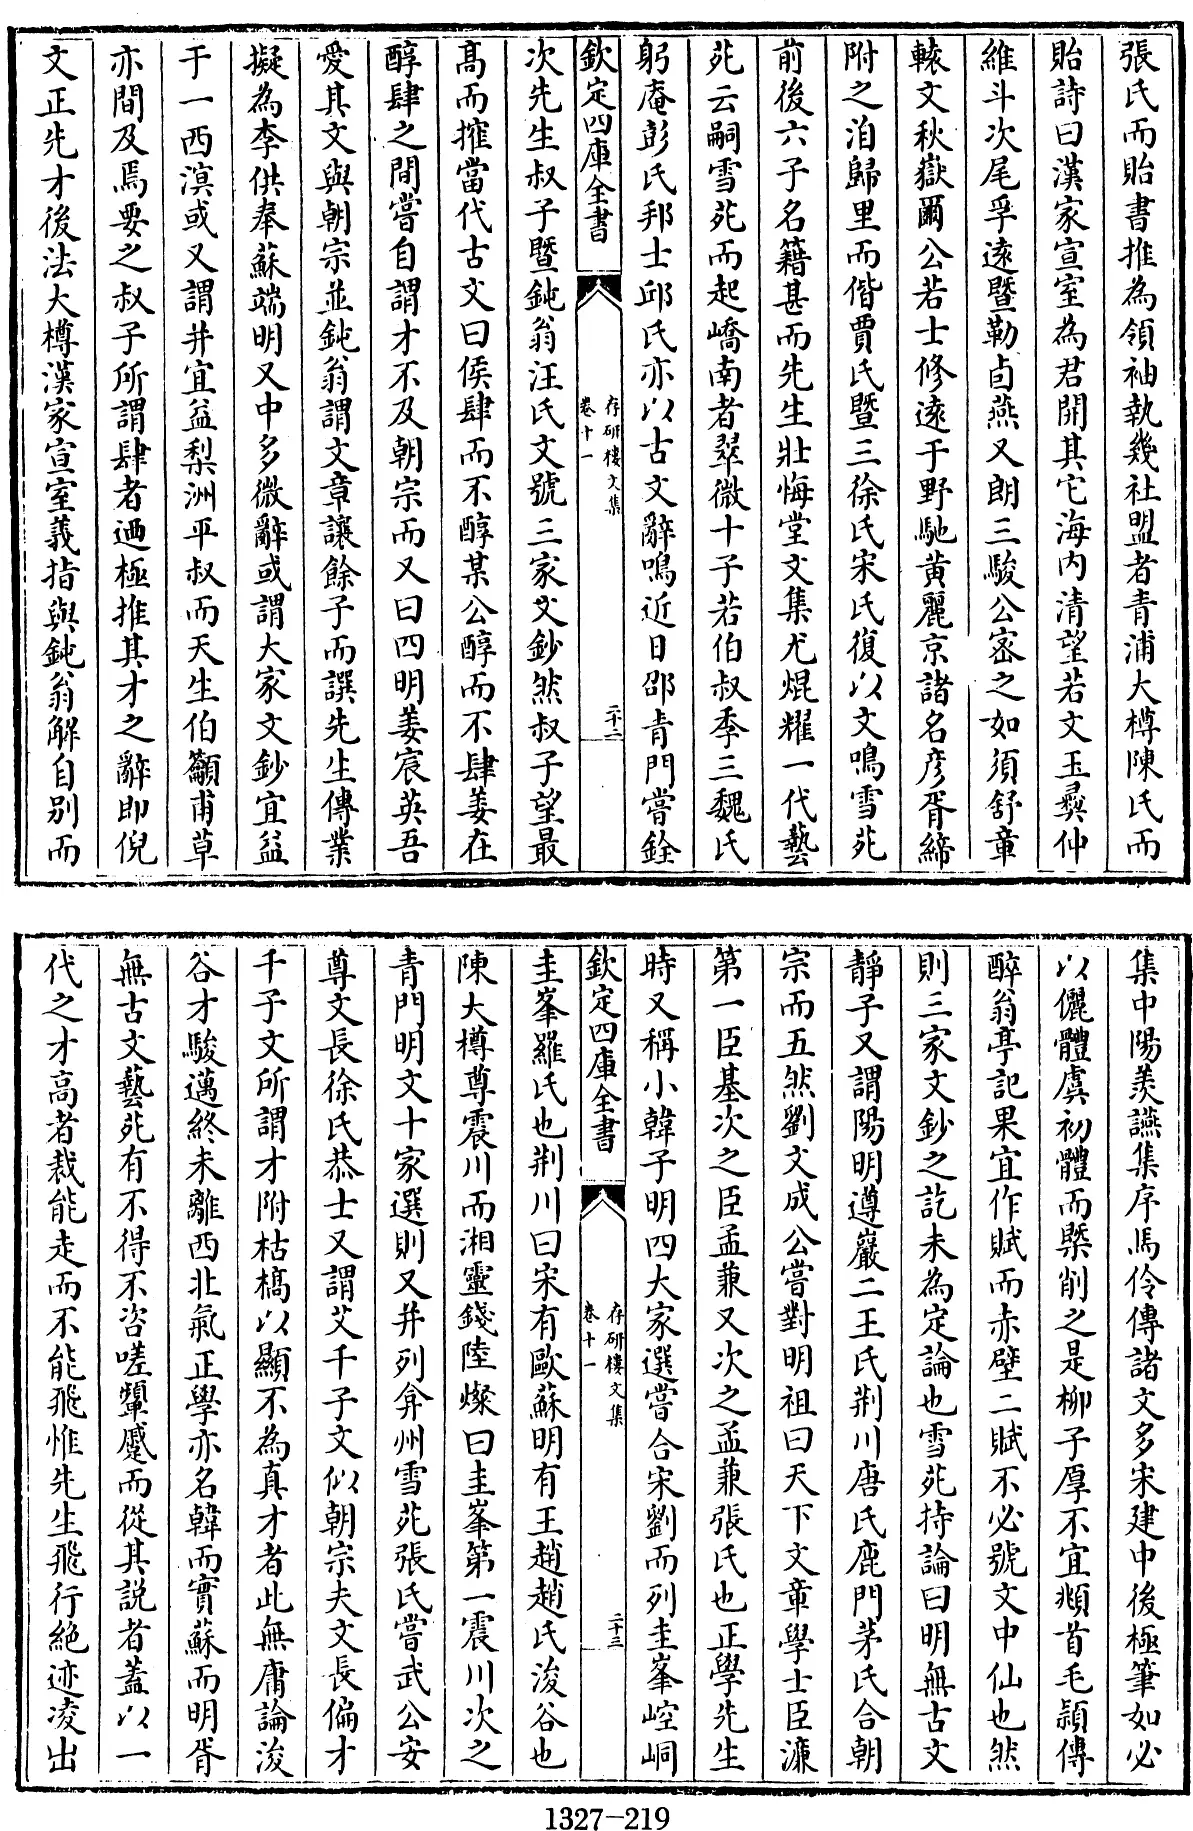 張氏而貽書推為領袖執幾社盟者青浦大樽陳氏而
貽詩曰漢家宣室為君開其它海内清望若文玉彛仲
維斗次尾孚逺暨勒卣燕又朗三駿公宻之如須舒章
轅文秋嶽爾公若士修逺于野馳黄麗京諸名彦胥締
附之洎歸里而偕賈氏暨三徐氏宋氏復以文鳴雪苑
前後六子名籍甚而先生壯悔堂文集尤焜燿一代藝
苑云嗣雪苑而起嶠南者翠微十子若伯叔季三魏氏
躬庵彭氏邦士邱氏亦以古文辭鳴近日邵青門嘗銓
欽定四庫全書
存研樓文集
卷十一
二十二
次先生叔子暨鈍翁汪氏文號三家文鈔然叔子望最
髙而搉當代古文曰侯肆而不醇某公醇而不肆姜在
醇肆之間嘗自謂才不及朝宗而又曰四明姜宸英吾
愛其文與朝宗並鈍翁謂文章讓餘子而譔先生傳業
擬為李供奉蘇端明又中多微辭或謂大家文鈔宜益
于一西溟或又謂并宜益梨洲平叔而天生伯籲甫草
亦間及焉要之叔子所謂肆者迺極推其才之辭即倪
文正先才後法大樽漢家宣室義指與鈍翁解自别而
集中陽羨讌集序馬伶傳諸文多宋建中後極筆如必
以儷體虞初體而槩削之是柳子厚不宜頫首毛頴傳
醉翁亭記果宜作賦而赤壁二賦不必號文中仙也然
則三家文鈔之訖未為定論也雪苑持論曰明無古文
靜子又謂陽明遵巖二王氏荆川唐氏鹿門茅氏合朝
宗而五然劉文成公嘗對明祖曰天下文章學士臣濂
第一臣基次之臣孟兼又次之孟兼張氏也正學先生
時又稱小韓子明四大家選嘗合宋劉而列圭峯崆峒
欽定四庫全書
存研樓文集
卷十一
二十三
圭峯羅氏也荆川曰宋有歐蘇明有王趙趙氏浚谷也
陳大樽尊震川而湘靈錢陸燦曰圭峯第一震川次之
青門明文十家選則又并列弇州雪苑張氏嘗武公安
尊文長徐氏恭士又謂艾千子文似朝宗夫文長偏才
千子文所謂才附枯槁以顯不為真才者此無庸論浚
谷才駿邁終未離西北氣正學亦名韓而實蘇而明胥
無古文藝苑有不得不咨嗟顰蹙而從其説者蓋以一
代之才高者裁能走而不能飛惟先生飛行絶迹凌出
1327-219